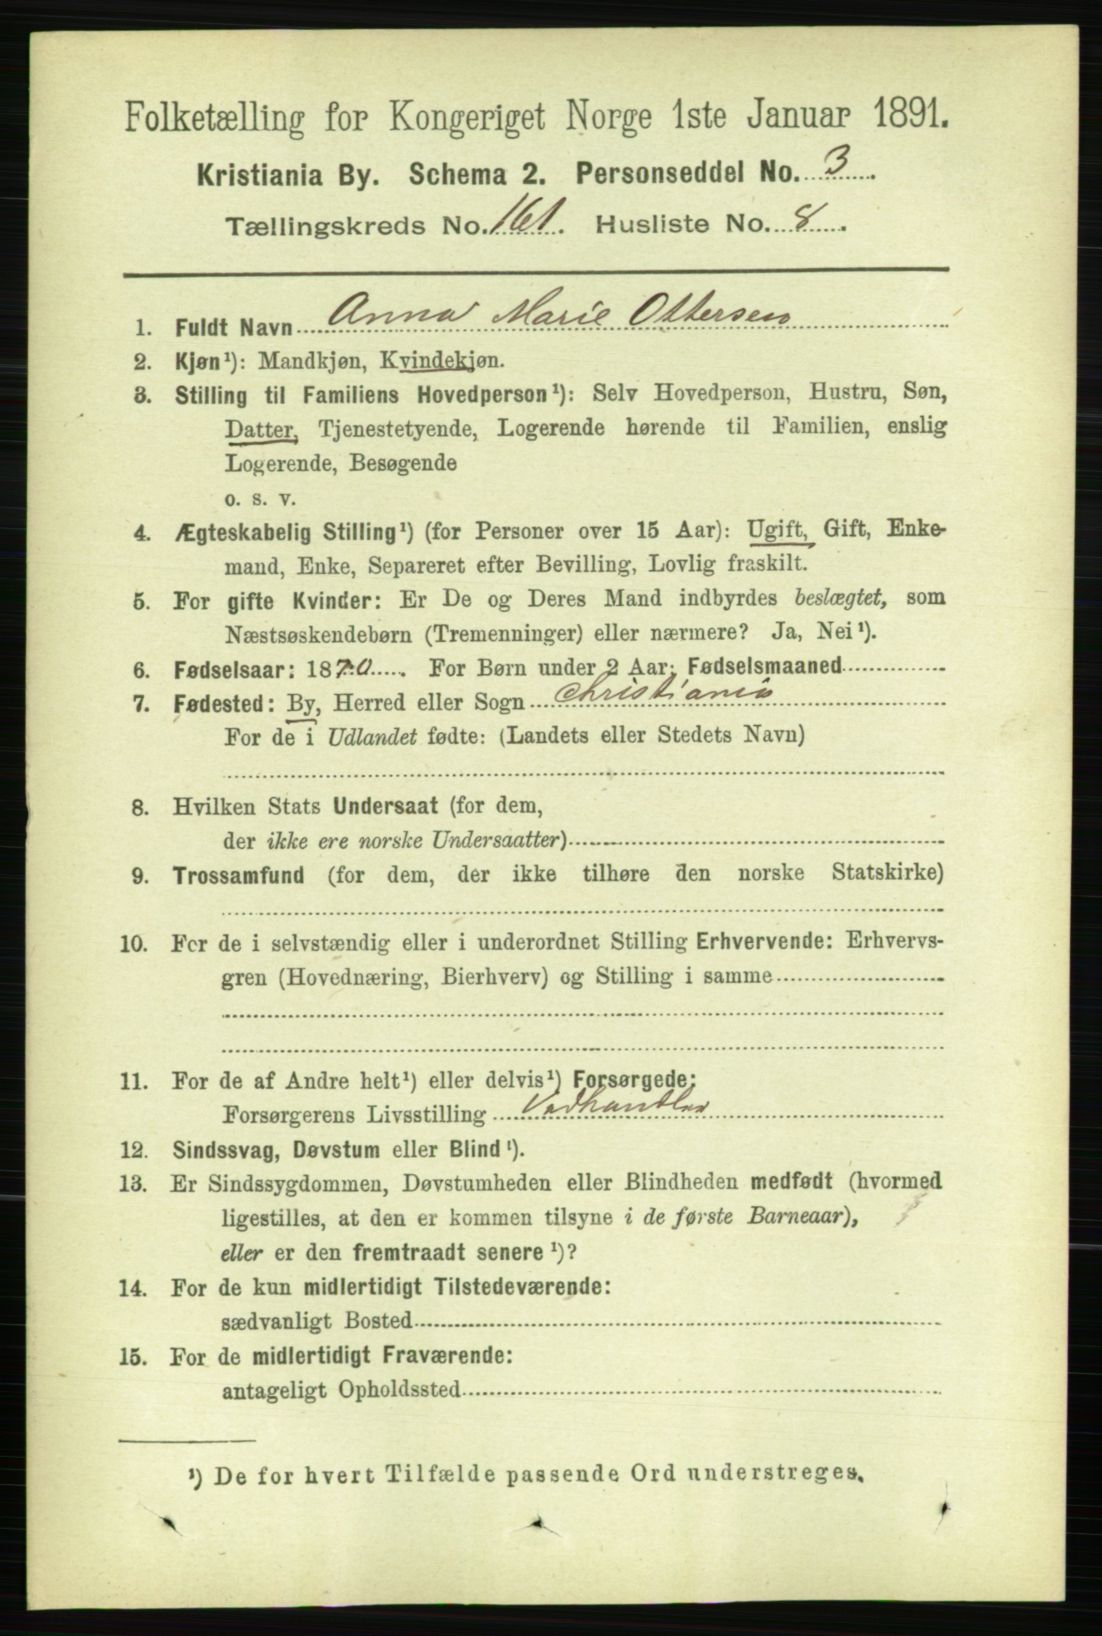 Folketælling for Kongeriget Norge 1ste Januar 1891.
Kristiania By. Schema 2. Personseddel No. 3.
Tællingskreds No. 161. Husliste No. 8.
1. Fuldt Navn Anna Marie Ottersen
2. Kjøn¹): Mandkjøn, Kvindekjøn.
3. Stilling til Familiens Hovedperson¹): Selv Hovedperson, Hustru, Søn,
Datter, Tjenestetyende, Logerende hørende til Familien, enslig
Logerende, Besøgende
o. s. v.
4. Ægteskabelig Stilling¹) (for Personer over 15 Aar): Ugift, Gift, Enke-
mand, Enke, Separeret efter Bevilling, Lovlig fraskilt.
5. For gifte Kvinder: Er De og Deres Mand indbyrdes beslægtet, som
Næstsøskendebørn (Tremenninger) eller nærmere? Ja, Nei¹).
6. Fødselsaar: 1870. For Børn under 2 Aar: Fødselsmaaned
7. Fødested: By, Herred eller Sogn Christiania
For de i Udlandet fødte: (Landets eller Stedets Navn)
8. Hvilken Stats Undersaat (for dem,
der ikke ere norske Undersaatter)
9. Trossamfund (for dem, der ikke tilhøre den norske Statskirke)
10. For de i selvstændig eller i underordnet Stilling Erhvervende: Erhvervs-
gren (Hovednæring, Bierhverv) og Stilling i samme
11. For de af Andre helt¹) eller delvis¹) Forsørgede:
Forsørgerens Livsstilling Vedhandler
12. Sindssvag, Døvstum eller Blind¹).
13. Er Sindssygdommen, Døvstumheden eller Blindheden medfødt (hvormed
ligestilles, at den er kommen tilsyne i de første Barneaar),
eller er den fremtraadt senere¹)?
14. For de kun midlertidigt Tilstedeværende:
sædvanligt Bosted
15. For de midlertidigt Fraværende:
antageligt Opholdssted
¹) De for hvert Tilfælde passende Ord understreges.